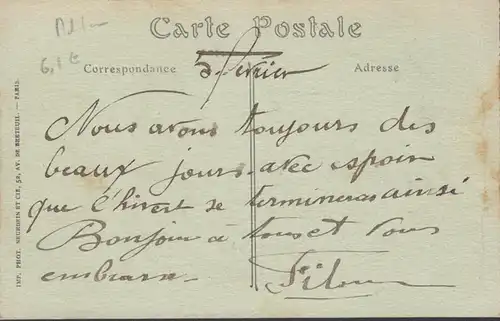 Carte Postale
6,1 €
5 février
Correspondance
Adresse
Nous avons toujours des
beaux jours avec espoir
que l'hivert se termineras ainsi
Bonjour à tous et vous
embrasse
IMP. PHOT. NEURDEIN ET CIE, 52, AV. DE BRETEUIL. — PARIS.